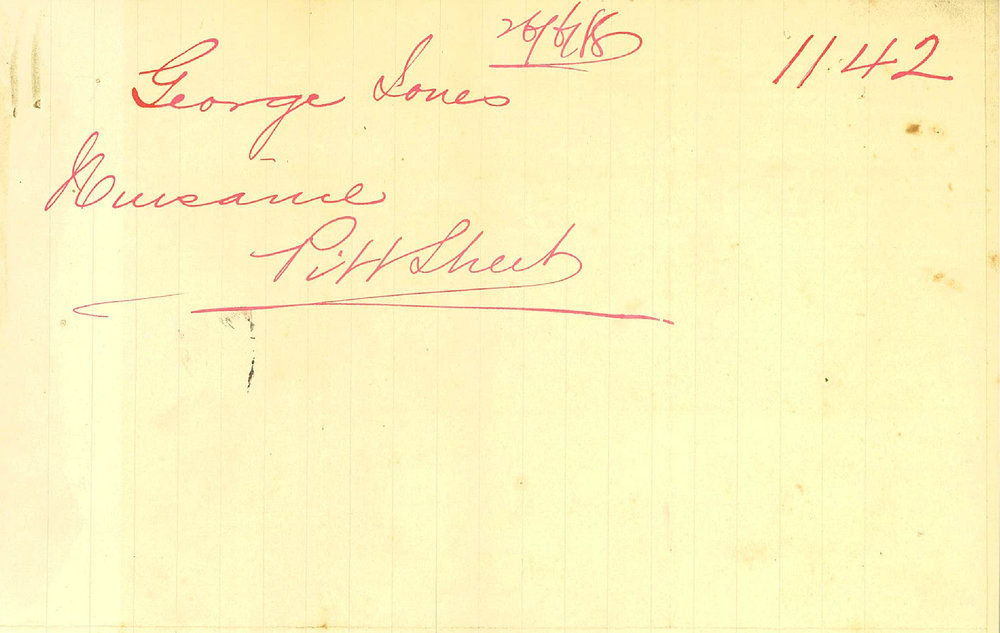 26/6/18
1142
George Jones
Nuisance
Pitt Street